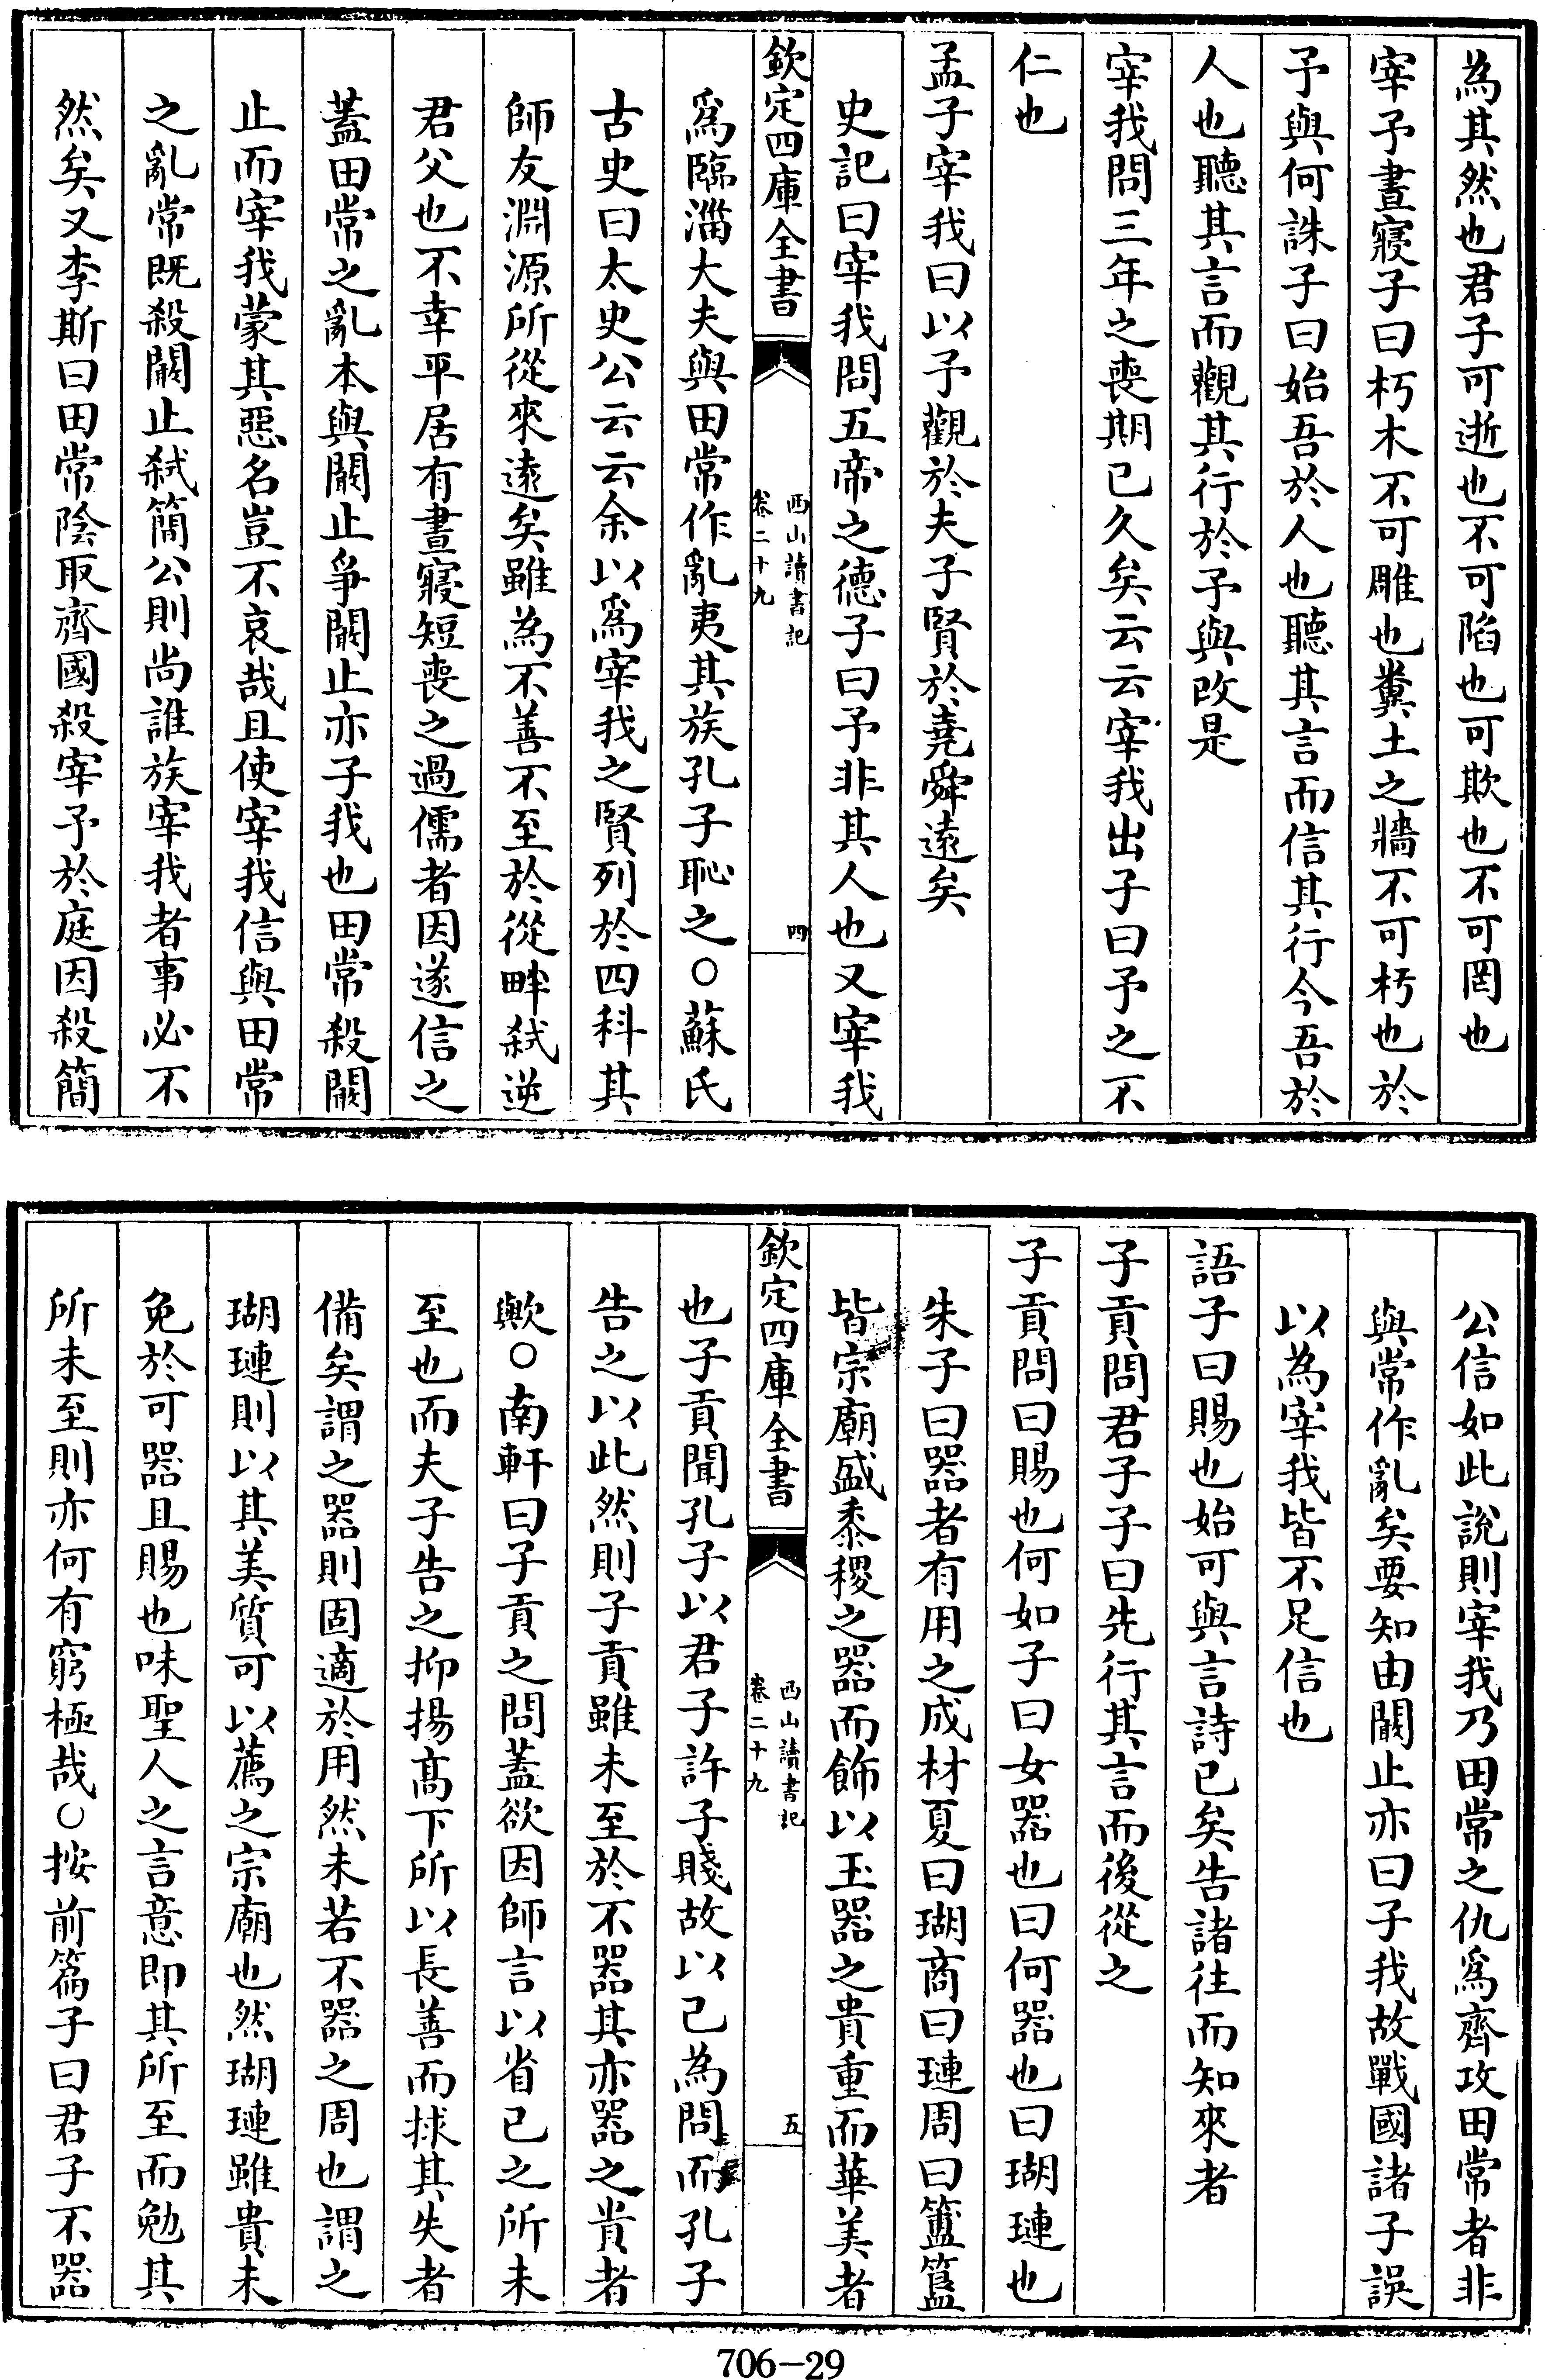 為其然也君子可逝也不可陷也可欺也不可罔也
宰予晝寢子曰朽木不可雕也糞土之牆不可杇也於
予與何誅子曰始吾於人也聽其言而信其行今吾於
人也聽其言而觀其行於予與改是
宰我問三年之喪期已久矣云云宰我出子曰予之不
仁也
孟子宰我曰以予觀於夫子賢於堯舜遠矣
史記曰宰我問五帝之德子曰予非其人也又宰我
欽定四庫全書
西山讀書記
卷二十九
四
爲臨淄大夫與田常作亂夷其族孔子恥之○蘇氏
古史曰太史公云云余以爲宰我之賢列於四科其
師友淵源所從來遠矣雖為不善不至於從畔弑逆
君父也不幸平居有晝寢短喪之過儒者因遂信之
蓋田常之亂本與闞止爭闞止亦子我也田常殺闞
止而宰我蒙其惡名豈不哀哉且使宰我信與田常
之亂常既殺闞止弑簡公則尚誰族宰我者事必不
然矣又李斯曰田常陰取齊國殺宰予於庭因殺簡
公信如此說則宰我乃田常之仇爲齊攻田常者非
與常作亂矣要知由闞止亦曰子我故戰國諸子誤
以為宰我皆不足信也
語子曰賜也始可與言詩已矣告諸往而知來者
子貢問君子子曰先行其言而後從之
子貢問曰賜也何如子曰女器也曰何器也曰瑚璉也
朱子曰器者有用之成材夏曰瑚商曰璉周曰簠簋
皆宗廟盛黍稷之器而飾以玉器之貴重而華美者
欽定四庫全書
西山讀書記
卷二十九
五
也子貢聞孔子以君子許子賤故以已為問而孔子
告之以此然則子貢雖未至於不器其亦器之貴者
歟○南軒曰子貢之問蓋欲因師言以省已之所未
至也而夫子告之抑揚髙下所以長善而捄其失者
備矣謂之器則固適於用然未若不器之周也謂之
瑚璉則以其美質可以薦之宗廟也然瑚璉雖貴未
免於可器且賜也味聖人之言意即其所至而勉其
所未至則亦何有窮極哉○按前篇子曰君子不器
706-29